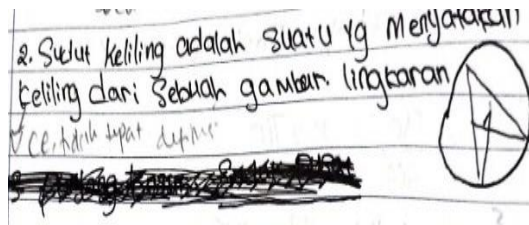 2. Sudut keliling adalah suatu yg menyatakan
keliling dari sebuah gambar lingkaran
tidak tepat